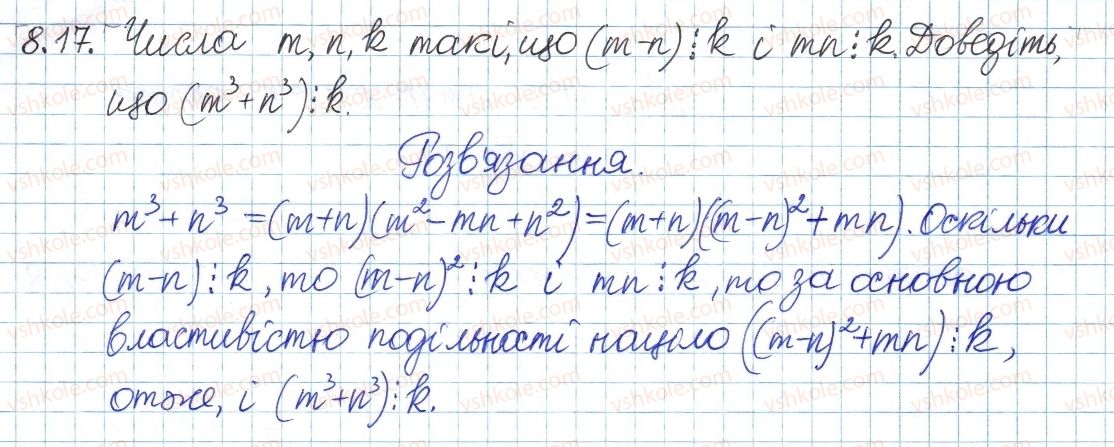 8.17. Числа m, n, k такі, що (m-n)⋮k і mn⋮k. Доведіть,
що (m³+n³)⋮k.
Розв'язання.
m³+n³ =(m+n)(m²-mn+n²)=(m+n)((m-n)²+mn). Оскільки
(m-n)⋮k, то (m-n)²⋮k і mn⋮k, то за основною
властивістю подільності націло ((m-n)²+mn)⋮k,
отже, і (m³+n³)⋮k.